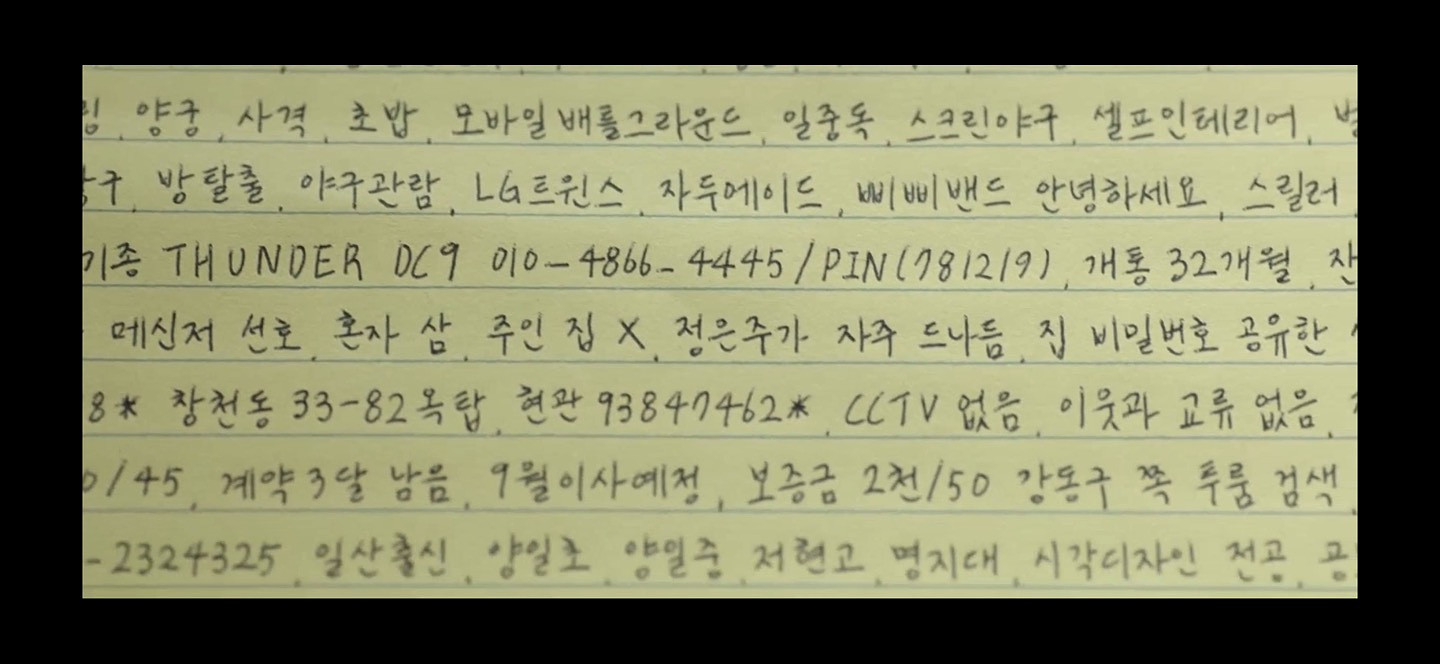 양궁, 사격, 초밥, 모바일배틀그라운드, 일중독, 스크린야구, 셀프인테리어,
방탈출, 야구관람, LG트윈스, 자두에이드, 삐삐밴드 안녕하세요, 스릴러
기종 THUNDER DC9 010-4866-4445/PIN(781219), 개통 32개월, 잔
메신저 선호, 혼자 삼, 주인 집 X, 정은주가 자주 드나듬, 집 비밀번호 공유한
8* 창천동 33-82옥탑, 현관 93847462*, CCTV 없음, 이웃과 교류 없음,
0/45, 계약 3달 남음, 9월이사예정, 보증금 2천/50 강동구 쪽 투룸 검색
-2324325, 일산출신, 양일초, 양일중, 저현고, 명지대, 시각디자인 전공, 공